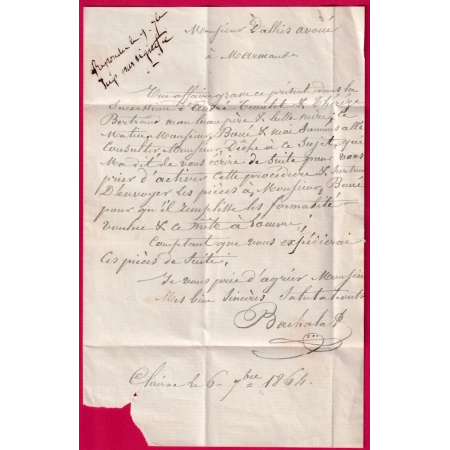 Répondu le 9 7bre
Monsieur Dallies avoué
à Marmande
Une affaire grave ce présent dans la
Succession d'André Coulet & Thérèze
Bertrand mon beau père & belle mère, le
Notaire Monsieur Boué & moi Sommes allé
Consulter Monsieur Dêche à ce Sujet, que
M'a dit de vous écrire de Suite pour vous
prier d'activer cette procédure & surtout
D'envoyer les pièces à Monsieur Boué
pour qu'il remplisse les formalité
voulue & ce mète à l'œuvre;
Comptant que vous expédierai
ces pièces de Suite;
Je vous prie d'agréer Monsieur
Mes bien Sincères Salutations
Bachala
le 6 7bre 1864.